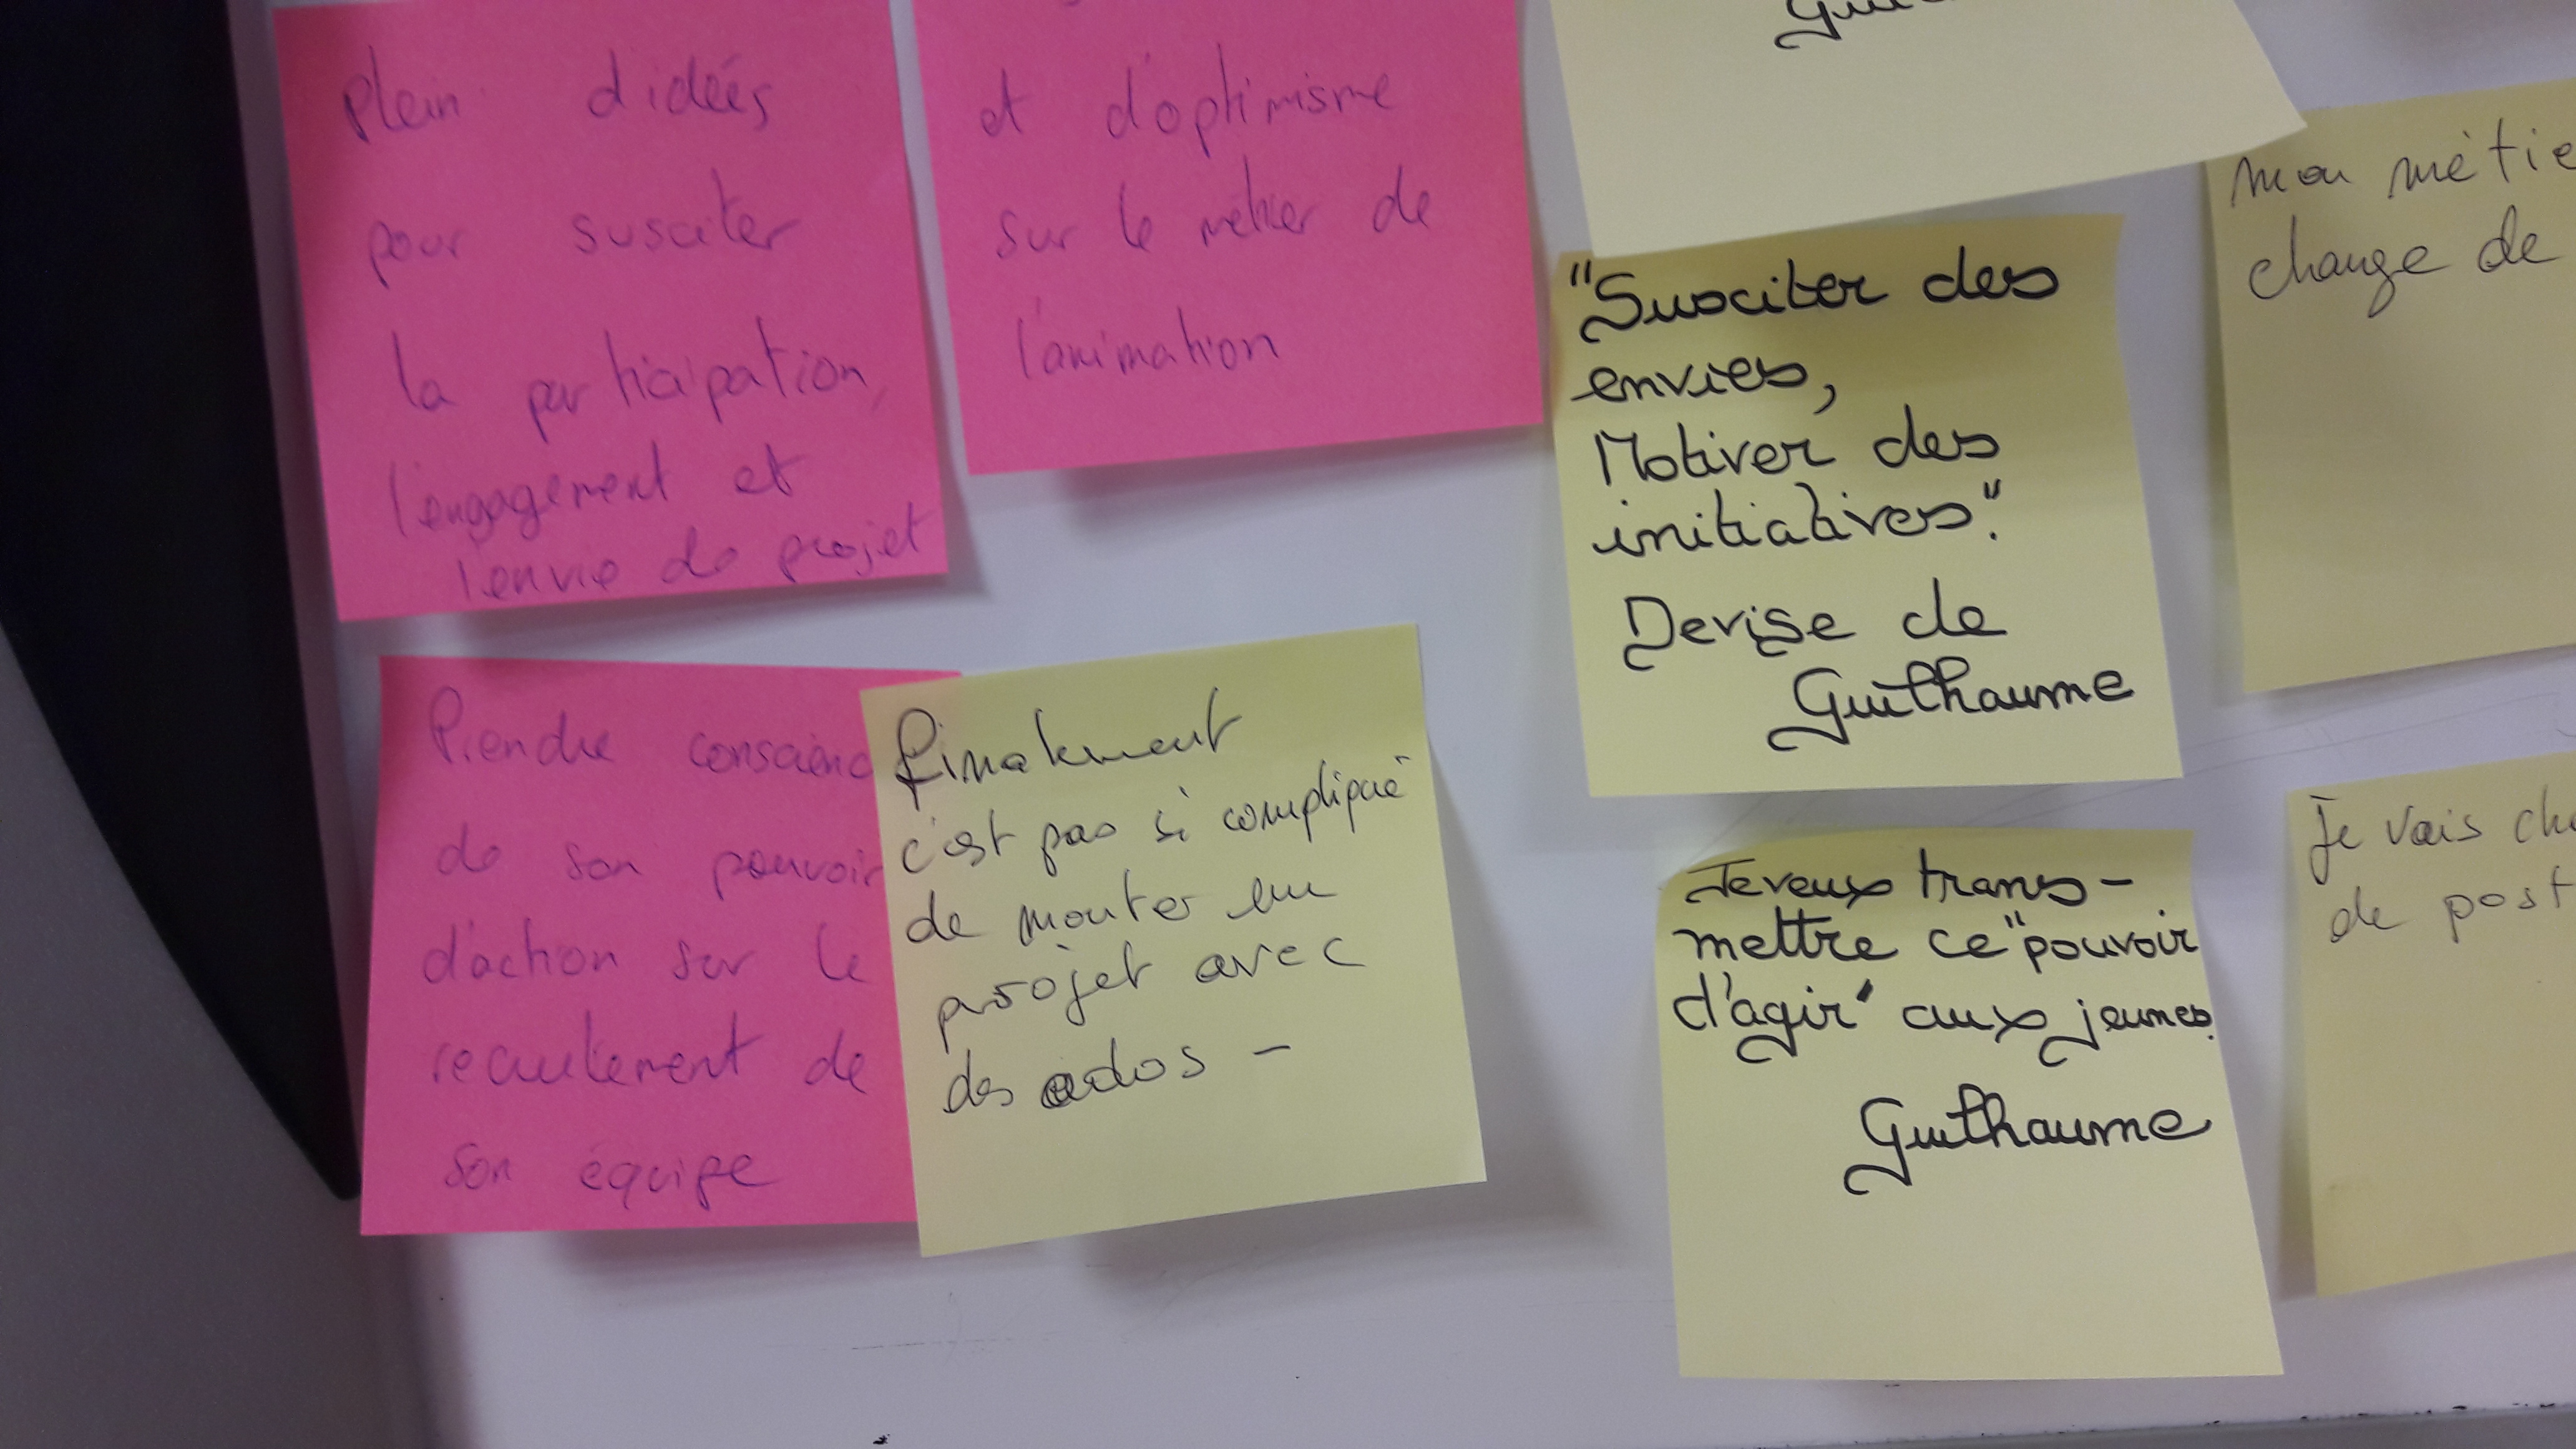 plein d'idées
pour susciter
la participation,
l'engagement et
l'envie de projet
et d'optimisme
sur le métier de
l'animation
"Susciter des
envies,
Motiver des
initiatives".
Devise de
Guilhaume
mon métie
change de
Prendre conscienc
de son pouvoir
d'action sur le
recrutement de
son équipe
finalement
c'est pas si compliqué
de monter un
projet avec
des ados -
Je veux trans-
mettre ce "pouvoir
d'agir" aux jeunes.
Guilhaume
Je vais ch
de post